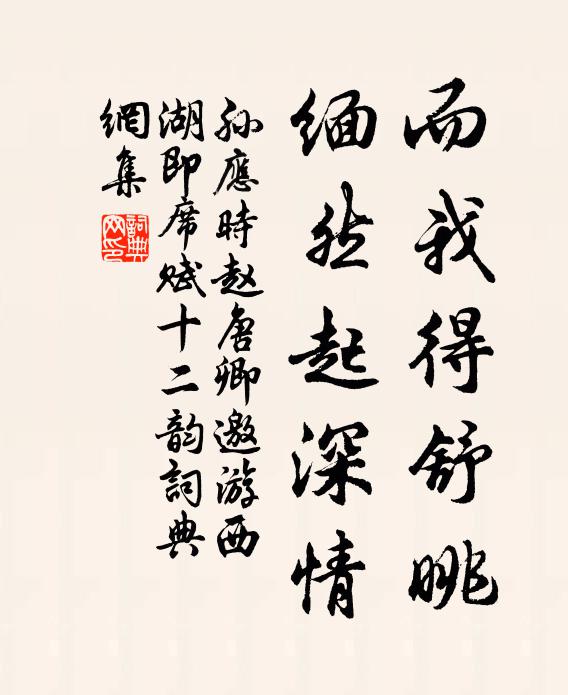 而我得舒眺
缅然起深情
孙應時赵唐卿邀游西
湖即席赋十二韵詞典
網集
詞典網印